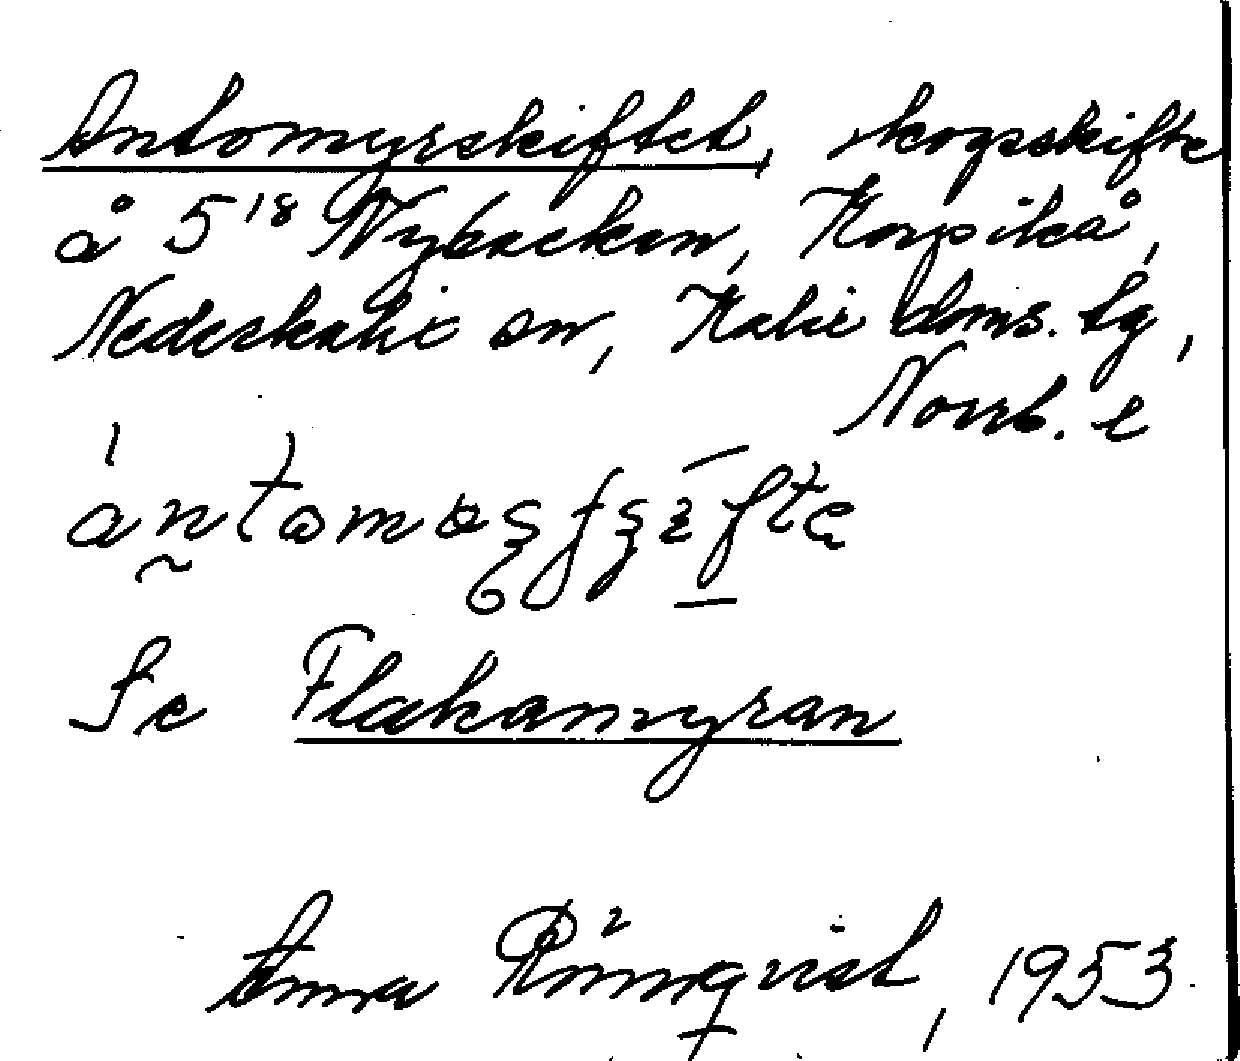 Antomyrskiftet, skogsskifte
å 5¹⁸ Nybacken, Korpikå,
Nederkalix sn, Kalix doms. tg,
Norrb. l
Se Flakamyran
Anna Rönnqvist, 1953